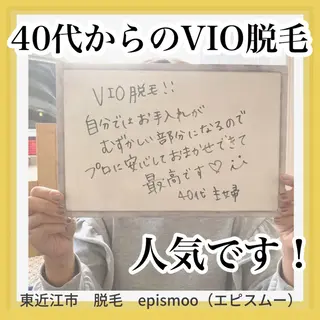 40代からのVIO脱毛
VIO脱毛!!
自分ではお手入れが
むずかしい部分になるので
プロに安心しておまかせできて
最高です♡
40代 主婦
人気です！
東近江市 脱毛 epismoo（エピスムー）